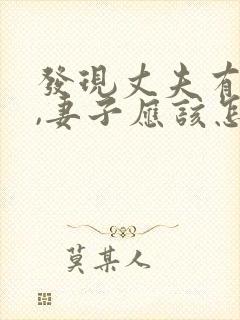 發現丈夫有
,妻子應該怎
莫某人